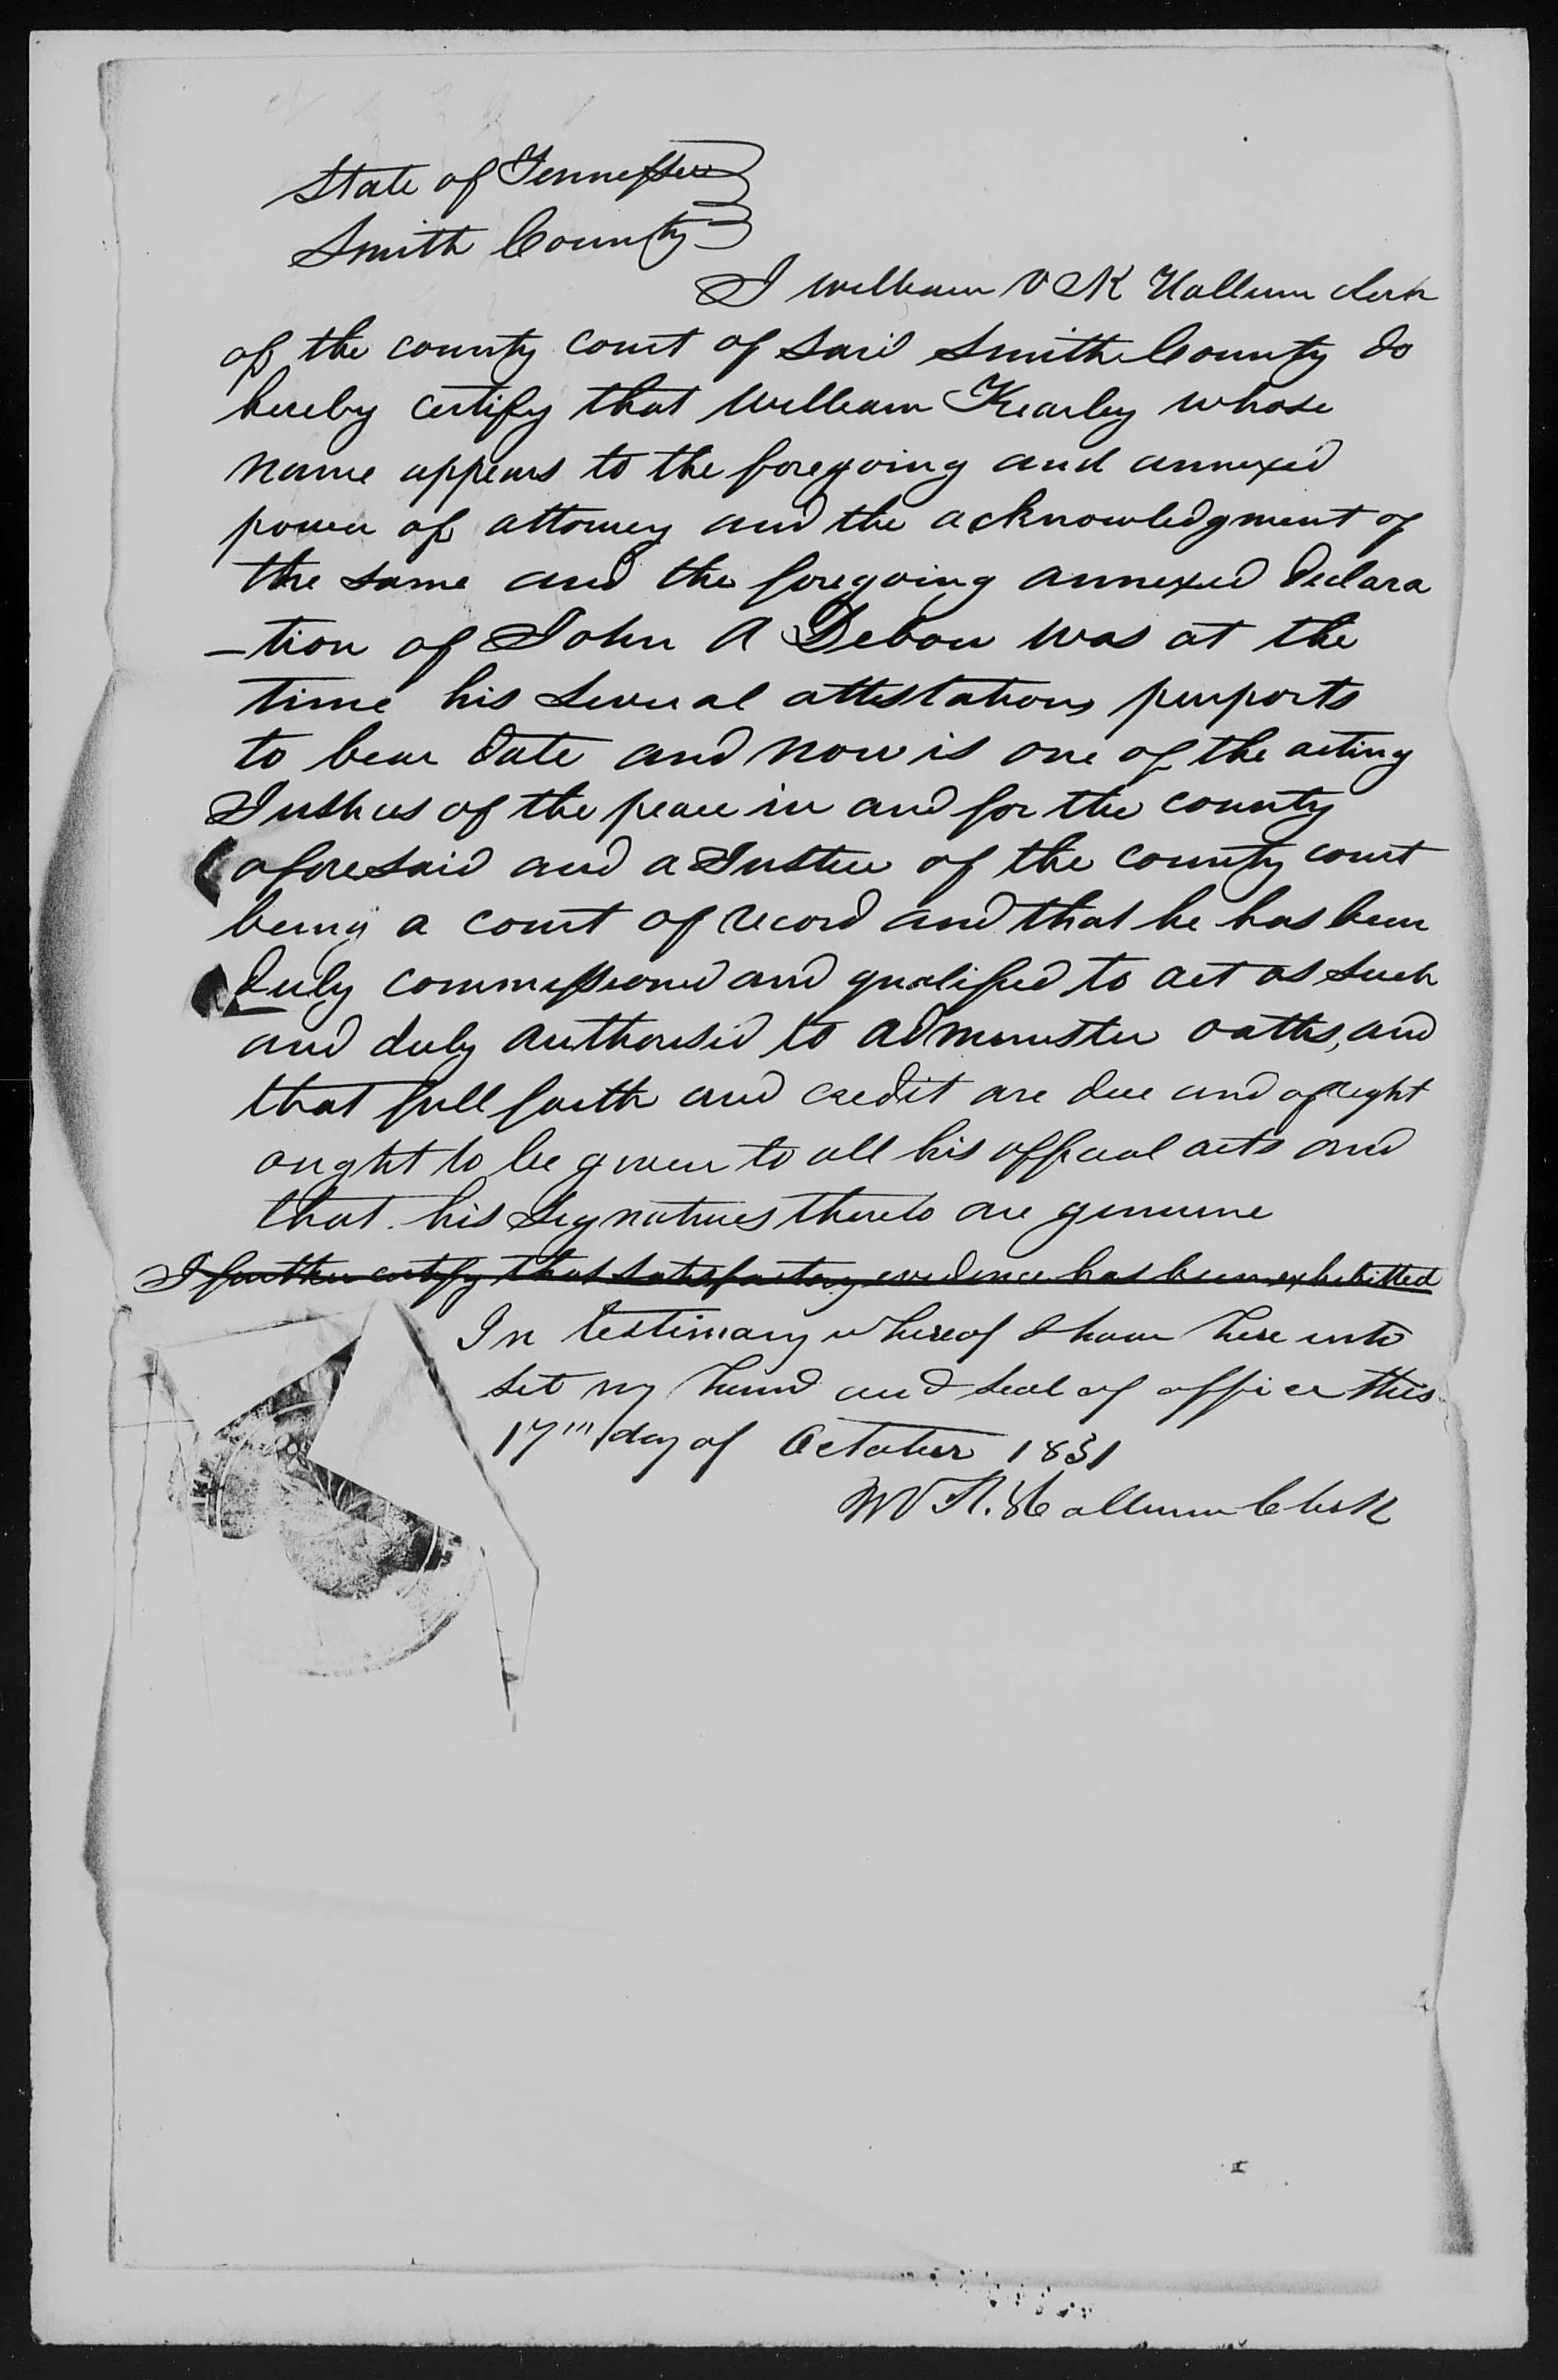 State of Tennessee
Smith County
I William V R Hallum clerk
of the county court of said Smith County do
hereby certify that William Kearley whose
name appears to the foregoing and annexed
power of attorney and the acknowledgment of
the same and the foregoing annexed declara
-tion of John A Debow was at the
time his several attestations purports
to bear date and now is one of the acting
Justices of the peace in and for the county
aforesaid and a Justice of the county court
being a court of record and that he has been
duly commissioned and qualified to act as such
and duly authorised to administer oaths, and
that full faith and credit are due and of right
ought to be given to all his official acts and
that his signatures thereto are genuine
I further certify that satisfactory evidence has been exhibitted
In testimony whereof I have here unto
set my hand and seal of office this
17th day of October 1851
W V R. Hallum Clerk